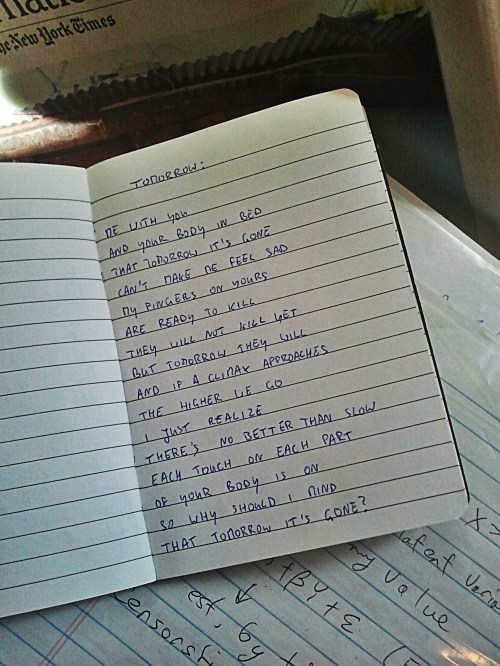 The New York Times
TOMORROW:
ME WITH YOU
AND YOUR BODY IN BED
THAT TOMORROW IT'S GONE
CAN'T MAKE ME FEEL SAD
MY FINGERS ON YOURS
ARE READY TO KILL
THEY WILL NOT KILL YET
BUT TOMORROW THEY WILL
AND IF A CLIMAX APPROACHES
THE HIGHER WE GO
I JUST REALIZE
THERE'S NO BETTER THAN SLOW
EACH TOUCH ON EACH PART
OF YOUR BODY IS ON
SO WHY SHOULD I MIND
THAT TOMORROW IT'S GONE?
latent vari
my value
est.
censoring